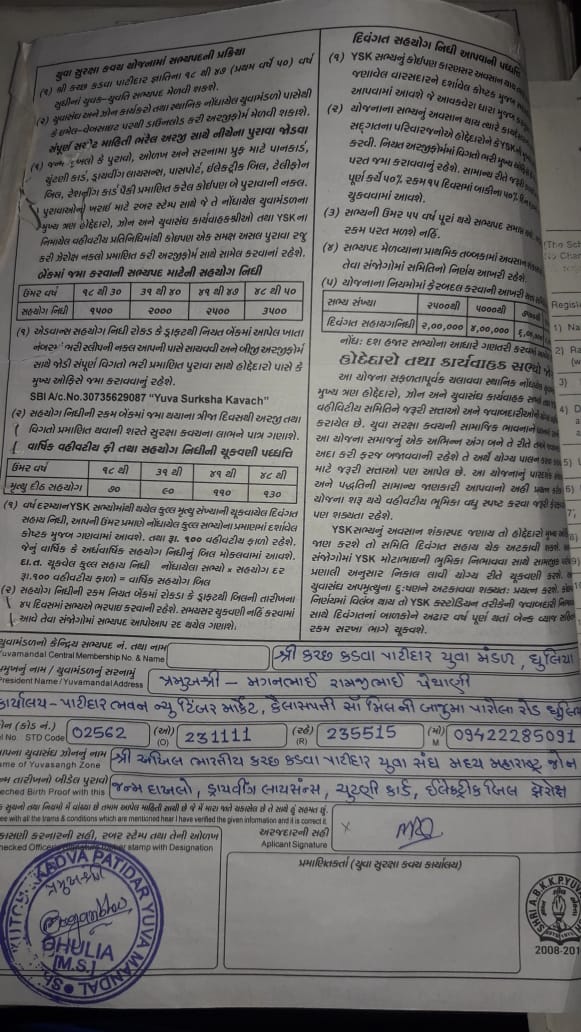 યુવા સુરક્ષા કવચ યોજનામાં સભ્યપદની પ્રક્રિયા
(૧) શ્રી કચ્છ કડવા પાટીદાર જ્ઞાતિના ૧૮ થી ૪૭ (પ્રથમ વર્ષે ૫૦) વર્ષ
સુધીનાં યુવક-યુવતિ સભ્યપદ મેળવી શકશે.
(૨) યુવાસંઘ અને ઝોન કાર્યકરો તથા સ્થાનિક નોંધાયેલ યુવામંડળો પાસેથી
કે છેલ્લે-વેબસાઇટ પરથી ડાઉનલોડ કરી અરજીફોર્મ મેળવી શકાશે.
સંપૂર્ણ સ્પષ્ટ માહિતી ભરેલ અરજી સાથે નીચેના પુરાવા જોડવા
(૧) જન્મ દાખલો કે પુરાવો, ઓળખ અને સરનામા પ્રુફ માટે પાનકાર્ડ,
ચુંટણી કાર્ડ, ડ્રાયવીંગ લાયસન્સ, પાસપોર્ટ, ઇલેક્ટ્રીક બિલ, ટેલીફોન
બિલ, રેશનીંગ કાર્ડ પૈકી પ્રમાણિત કરેલ કોઇપણ બે પુરાવાની નકલ.
પુરાવાઓની ખરાઇ માટે રબર સ્ટેમ્પ સાથે જે તે નોંધાયેલ યુવામંડળના
મુખ્ય ત્રણ હોદ્દેદારો, ઝોન અને યુવાસંઘ કાર્યવાહકશ્રીઓ તથા YSK ના
નિમાયેલ વહીવટીય પ્રતિનિધિમાંથી કોઇપણ એક સમક્ષ અસલ પુરાવા રજુ
કરી ઝેરોક્ષ નકલો પ્રમાણિત કરી અરજીફોર્મ સાથે સામેલ કરવાનાં રહેશે.
બેંકમાં જમા કરવાની સભ્યપદ માટેની સહયોગ નિધી
ઉમર વર્ષ ૧૮ થી ૩૦ ૩૧ થી ૪૦ ૪૧ થી ૪૭ ૪૮ થી ૫૦
સહયોગ નિધી ૧૫૦૦ ૨૦૦૦ ૨૫૦૦ ૩૫૦૦
(૧) એડવાન્સ સહયોગ નિધી રોકડ કે ડ્રાફ્ટથી નિયત બેંકમાં આપેલ ખાતા
નંબરમાં ભરી સ્લીપની નકલ આપની પાસે સાચવવી અને બીજી અરજીફોર્મ
સાથે જોડી સંપૂર્ણ વિગતો ભરી પ્રમાણિત પુરાવા સાથે હોદ્દેદારો પાસે કે
મુખ્ય ઓફિસે જમા કરાવવાનું રહેશે.
SBI A/c.No.30735629087 "Yuva Surksha Kavach"
(૨) સહયોગ નિધીની રકમ બેંકમાં જમા થયાના ત્રીજા દિવસથી અરજી તથા
વિગતો પ્રમાણિત થવાની શરતે સુરક્ષા કવચના લાભને પાત્ર ગણાશે.
વાર્ષિક વહીવટીય ફી તથા સહયોગ નિધીની ચૂકવણી પધ્ધતિ
ઉમર વર્ષ ૧૮ થી ૩૧ થી ૪૧ થી ૪૮ થી
મૃત્યુ દીઠ સહયોગ ૭૦ ૯૦ ૧૧૦ ૧૩૦
(૧) વર્ષ દરમ્યાન YSK સભ્યોમાંથી થયેલ કુલ મૃત્યુ સંખ્યાની ચૂકવાયેલ દિવંગત
સહાય નિધી, આપની ઉમર પ્રમાણે નોંધાયેલ કુલ સભ્યોના પ્રમાણમાં દર્શાવેલ
કોષ્ટક મુજબ ગણવામાં આવશે. તથા રૂા. ૧૦૦ વહીવટીય ફાળો રહેશે.
જેનું વાર્ષિક કે અર્ધવાર્ષિક સહયોગ નિધીનું બિલ મોકલવામાં આવશે.
દા.ત. ચૂકવેલ કુલ સહાય નિધી નોંધાયેલા સભ્યો x સહયોગ દર
રૂા.૧૦૦ વહીવટીય ફાળો = વાર્ષિક સહયોગ બિલ
(૨) સહયોગ નિધીની રકમ નિયત બેંકમાં રોકડા કે ડ્રાફ્ટથી બિલની તારીખના
૪૫ દિવસમાં સભ્યએ ભરપાઇ કરવાની રહેશે. સમયસર ચુકવણી નહિં કરવામાં
આવે તેવા સંજોગોમાં સભ્યપદ આપોઆપ રદ થયેલ ગણાશે.
દિવંગત સહયોગ નિધી આપવાની પધ્ધતિ
(૧) YSK સભ્યનું કોઇપણ કારણસર અવસાન થાય
જણાવેલ વારસદારને દર્શાવેલ કોષ્ટક મુજબ
આપવામાં આવશે જે આવકવેરા ધારા મુજબ
(૨) યોજનાના સભ્યનું અવસાન થાય ત્યારે
સદ્‌ગતના પરિવારજનોએ હોદ્દેદારોને કે YSK
કરવી. નિયત અરજીફોર્મમાં વિગતો ભરી મુખ્ય
પરત જમા કરાવવાનું રહેશે. સામાન્ય રીતે
પૂર્ણ કર્યે ૫૦% રકમ ૧૫ દિવસમાં બાકીની ૫૦%
ચુકવવામાં આવશે.
(૩) સભ્યની ઉમર ૫૫ વર્ષ પૂરાં થયે સભ્યપદ સમાપ્ત
રકમ પરત મળશે નહિં.
(૪) સભ્યપદ મેળવ્યાના પ્રાથમિક તબક્કામાં અવસાન
તેવા સંજોગોમાં સમિતિનો નિર્ણય આખરી રહેશે.
(૫) યોજનાના નિયમોમાં ફેરબદલ કરવાની આખરી
સભ્ય સંખ્યા ૨૫૦૦થી ૫૦૦૦થી
દિવંગત સહાયનિધી ૨,૦૦,૦૦૦ ૪,૦૦,૦૦૦
નોંધ: દશ હજાર સભ્યોના આધારે ગણતરી કરવામાં
હોદ્દેદારો તથા કાર્યવાહક સભ્યો
આ યોજના સફળતાપૂર્વક ચલાવવા સ્થાનિક નોંધાયેલ
મુખ્ય ત્રણ હોદ્દેદારો, ઝોન અને યુવાસંઘ કાર્યવાહક
વહીવટીય સમિતિને જરૂરી સત્તાઓ અને જવાબદારીઓ
કરાયેલ છે. યુવા સુરક્ષા કવચની સામાજિક ભાવનાને
આ યોજના સમાજનું એક અભિન્ન અંગ બને તે રીતે
અદા કરી ફરજ બજાવવાની રહેશે તે અર્થે યોગ્ય પાલન
માટે જરૂરી સત્તાઓ પણ આપેલ છે. આ યોજનાનું
અને પધ્ધતિની સામાન્ય જાણકારી આપવાનો અહી પ્રયત્ન
યોજના શરૂ થયે વહીવટીય ભૂમિકા વધુ સ્પષ્ટ કરવા જરૂરી
પણ શક્યતા રહેશે.
YSK સભ્યનું અવસાન શંકાસ્પદ જણાય તો હોદ્દેદારો મુખ્ય
જાણ કરશે તો સમિતિ દિવંગત સહાય ચેક અટકાવી શકશે.
સંજોગોમાં YSK મોટાભાઇની ભુમિકા નિભાવવા સાથે સામાજીક
પ્રણાલી અનુસાર નિકાલ લાવી યોગ્ય રીતે ચૂકવણી કરશે.
યુવાસંઘ અપમૃત્યુના દુ:ષણને અટકાવવા શક્યત: પ્રયત્ન કરશે.
નિર્ણયમાં વિલંબ થાય તો YSK કસ્ટોડિયન તરીકેની જવાબદારી
સાથે દિવંગતનાં બાળકોને અઢાર વર્ષ પૂર્ણ થતાં બેન્ક વ્યાજ સહિત
રકમ સરખા ભાગે ચૂકવશે.
યુવામંડળનો કેન્દ્રિય સભ્યપદ નં. તથા નામ
Yuvamandal Central Membership No. & Name
શ્રી કચ્છ કડવા પાટીદાર યુવા મંડળ, ધુલિયા
પ્રમુખનું નામ / યુવામંડળનું સરનામું
President Name / Yuvamandal Address
પ્રમુખશ્રી - મગનભાઈ રામજીભાઈ પેથાણી
કાર્યાલય - પાટીદાર ભવન ન્યુ ટિંબર માર્કેટ, કૈલાસપતી સૉ મિલની બાજુમા પારોલા રોડ ધુલિયા
ઝોન (કોડ નં.)
STD Code 02562 (ઓ) (O) 231111 (રહે) (R) 235515 (મો) M 09422285091
આપના યુવાસંઘ ઝોનનું નામ
Name of Yuvasangh Zone
શ્રી અખિલ ભારતીય કચ્છ કડવા પાટીદાર યુવા સંઘ મધ્ય મહારાષ્ટ્ર જોન
જન્મ તારીખનો બીડેલ પુરાવો
Birth Proof with this
જન્મ દાખલો, ડ્રાયવીંગ લાયસન્સ, ચુટણી કાર્ડ, ઈલેકટ્રીક બિલ ઝેરોક્ષ
see with all the trams & conditions which are mentioned hear I have verified the given information and it is correct.
ચકાસણી કરનારની સહી, રબર સ્ટેમ્પ તથા તેની ઓળખ
stamp with Designation
અરજદારની સહી
Aplicant Signature
x
પ્રમાણિતકર્તા (યુવા સુરક્ષા કવચ કાર્યાલય)
KADVA PATIDAR YUVA MANDAL
પ્રમુખશ્રી
DHULIA
[M.S.]
SHRI A.B.K.K.P.YUVA
2008-201
(The Sch
No Char
Registe
1) Na
2) Ra
(w
3)
4) D
5)
6)
7)
8)
9)
10
11